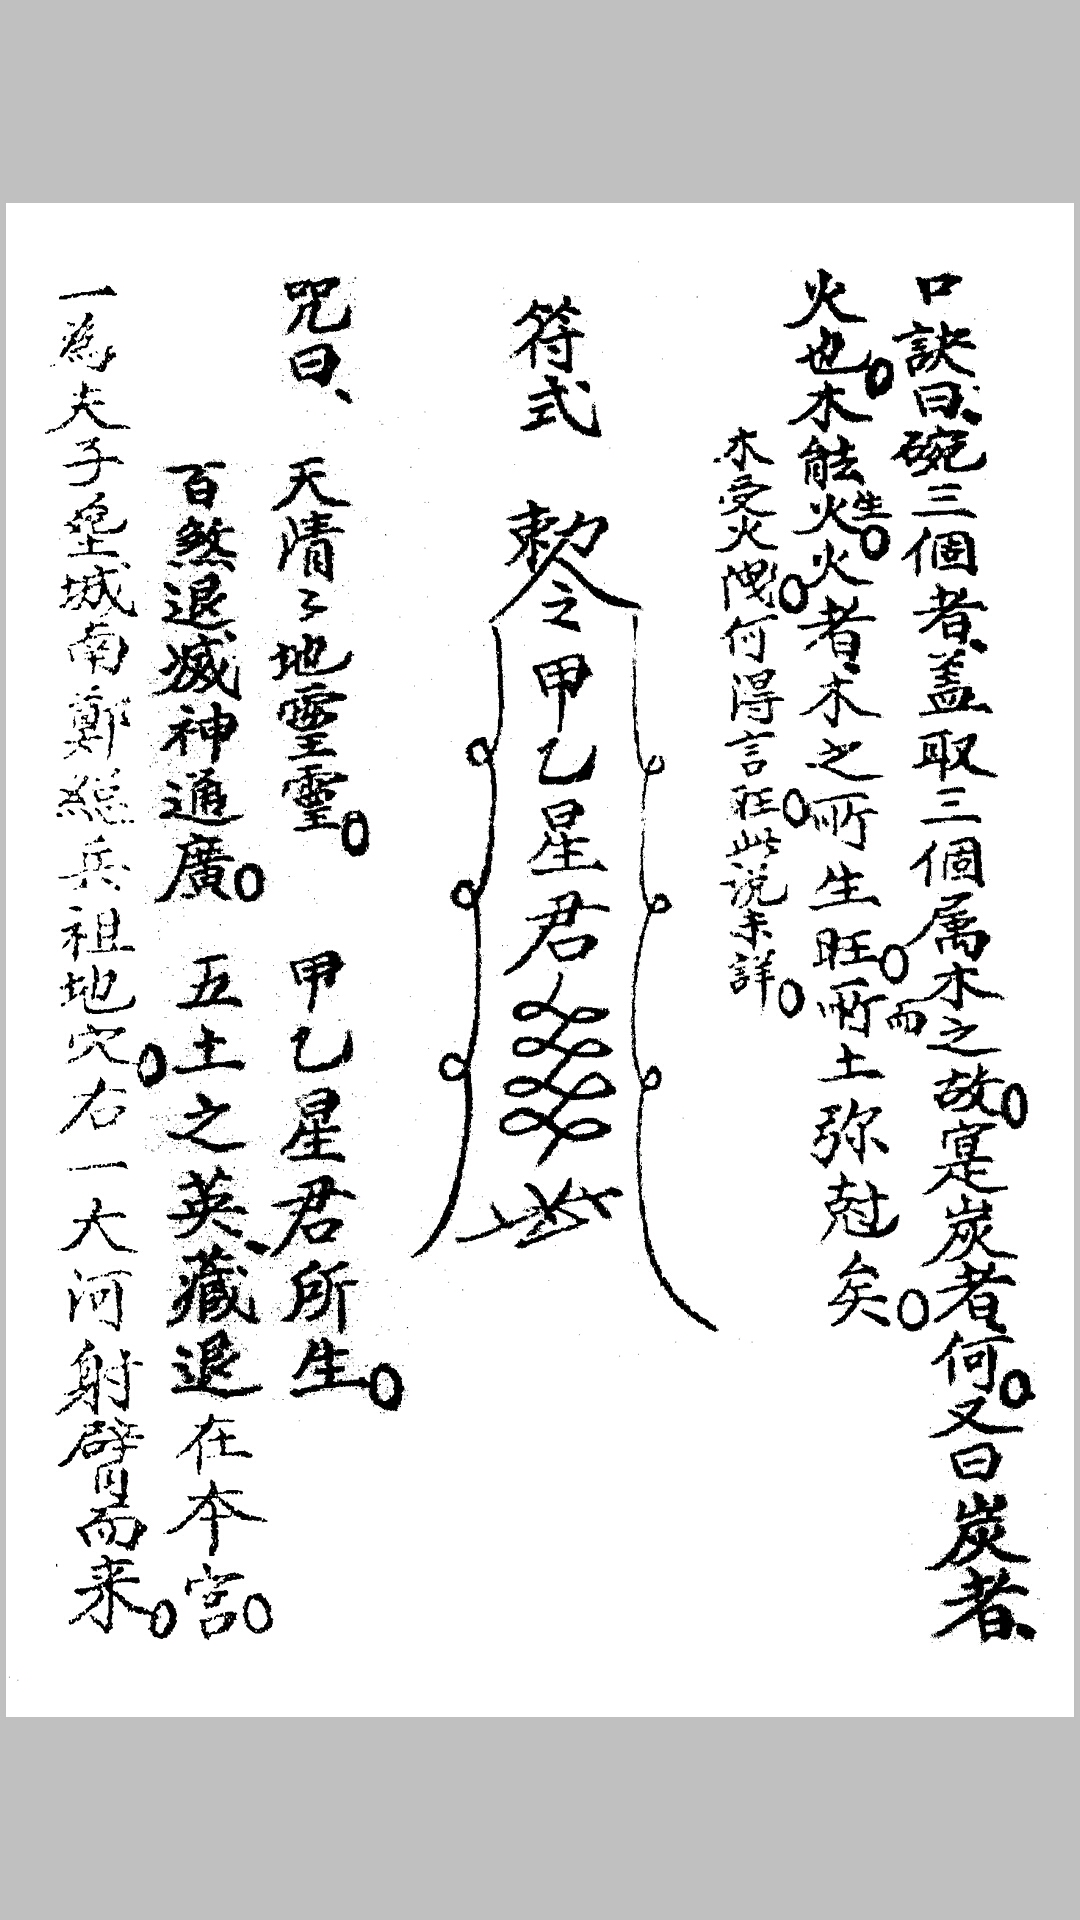 口訣曰碗三個者盖取三個属木之故寔炭者何又曰炭者
火也木能生火火者木之所生旺而所土弥尅矣
木受火洩何得言旺此说未詳
符式
勅令
甲乙星君
咒曰天清〻地靈靈 甲乙星君所生
百煞退滅神通廣 五土之英藏退在本宮
一為夫子塋城南鄭総兵祖地穴右一大河射臂而来